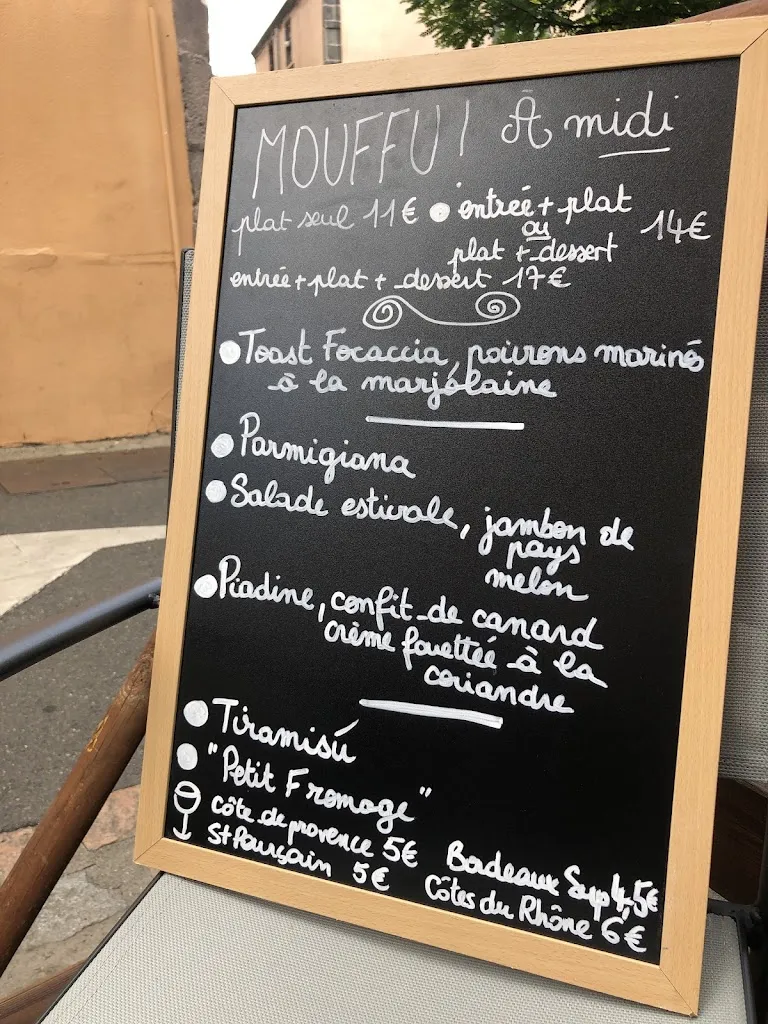 MOUFFU! À midi
plat seul 11€ • entrée + plat
ou 14€
plat + dessert
entrée + plat + dessert 17€
• Toast Focaccia, poivrons marinés
à la marjolaine
• Parmigiana
• Salade estivale, jambon de
pays
melon
• Piadine, confit de canard
crème fouettée à la
coriandre
• Tiramisú
• "Petit Fromage"
Côte de provence 5€ Bordeaux Sup 4,5€
St Pourçain 5€ Côtes du Rhône 6€